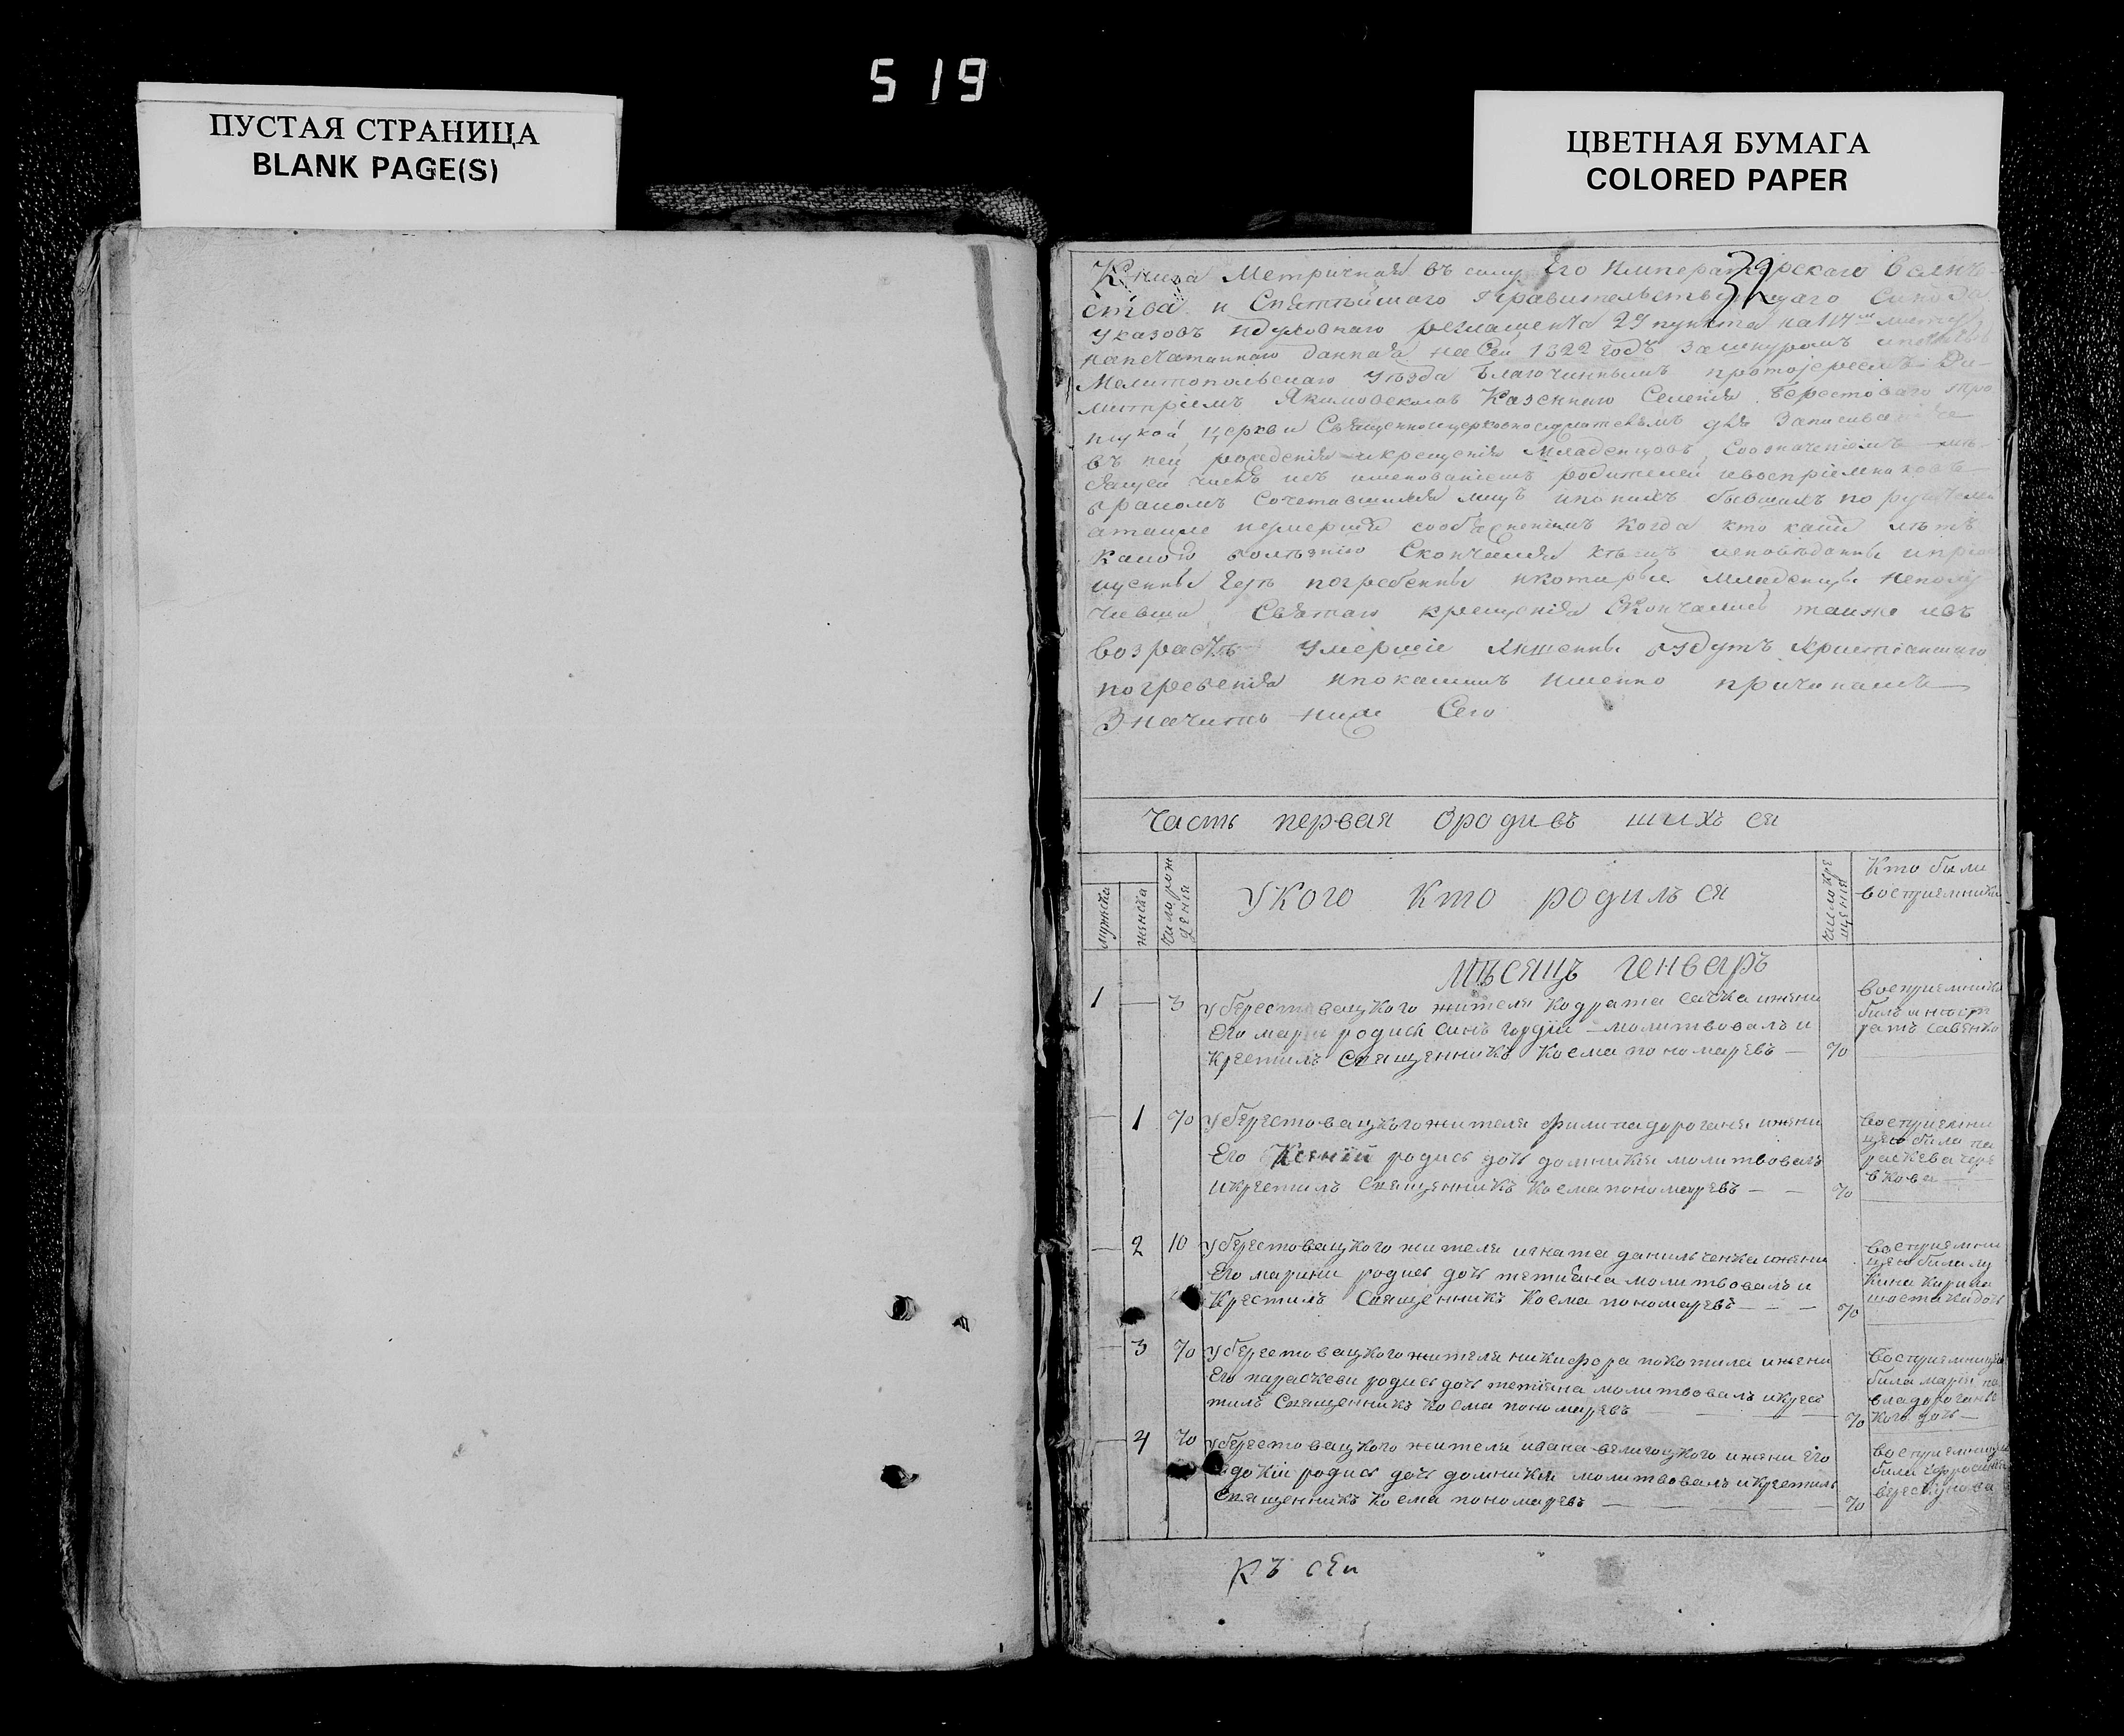 519
ПУСТАЯ СТРАНИЦА
BLANK PAGE(S)
ЦВЕТНАЯ БУМАГА
COLORED PAPER
32
Книга Метричная въ силу Его Императорскаго Велич
ства и Святѣйшаго Правительствующаго Синода
указовъ идуховнаго регламента 29 пункта на 114
напечатаннаго данная на Сей 1822 годъ За шнуромъ ипечатью
Мелитопольскаго уѣзда Благочиннымъ протоіереемъ Ди-
митріемъ Якимовскимъ Казеннаго Селенія Берестоваго Тро
ицкой Церкви Священноцерковнослужителямъ для Записыванія
въ ней рожденія икрещенія Младенцовъ, Соозначеніемъ мѣ-
сяцей числъ исъ именованіемъ родителей ивоспріемниковъ
бракомъ Сочетавшихся лицъ ипонихъ бывшихъ поручителей
атакже иумершія сообясненіемъ Когда кто каких лѣтъ
какою болѣзнію Скончался кѣмъ исповѣданны ипріо
щенны гдѣ погребенны икоторые Младенцы неполу
чивши Святаго крещенія Скончались также ивъ
возрастѣ Умершіе лишенны будутъ Христіанскаго
погребенія ипокакимъ имянно причинамъ
Значить ниже Сего
Часть первая Ородивъ шихъ ся
мужска
женска
Число рож
денія
Укого Кто родилъ ся
Число кре
щенія
Кто были
восприемники
Мѣсяцъ Генваръ
1 — 3 Уберестовацкого жителя Кодрата сачка ижени
Его марі родися синъ гордій — молитвовалъ и
Крестилъ Священникъ Косма пономаревъ — %
восприемнико
билъ
ратъ савенко
— 1 % Уберестовацкого жителя филипа дороганя ижени
Его Ксеніи родись дочь домникия молитвовалъ
икрестилъ Священникъ Косма пономаревъ — — %
восприемни
цею била па
раскева чере
вкова
— 2 10 Уберестовацкого жителя игната данильченка ижени
Его марини родись дочь тетияна молитвовалъ и
Крестилъ Священникъ Косма пономаревъ — — — %
восприемни
цею била лу
кина кирила
шостаки дочь
— 3 % Уберестовацкого жителя никифора покотила ижени
Его параскеви родись дочь тетияна молитвовалъ икрес
тилъ Священникъ Косма пономаревъ — %
Восприемницею
била марія па
вла дороганев
кого дочь —
— 4 % Уберестовацкого жителя ивана велигоцкого ижени Его
Евдокіи родись дочь домникия молитвовалъ икрестилъ
Священникъ Косма пономаревъ — %
Восприемницею
била Ефросинія
верескунова
Къ сей